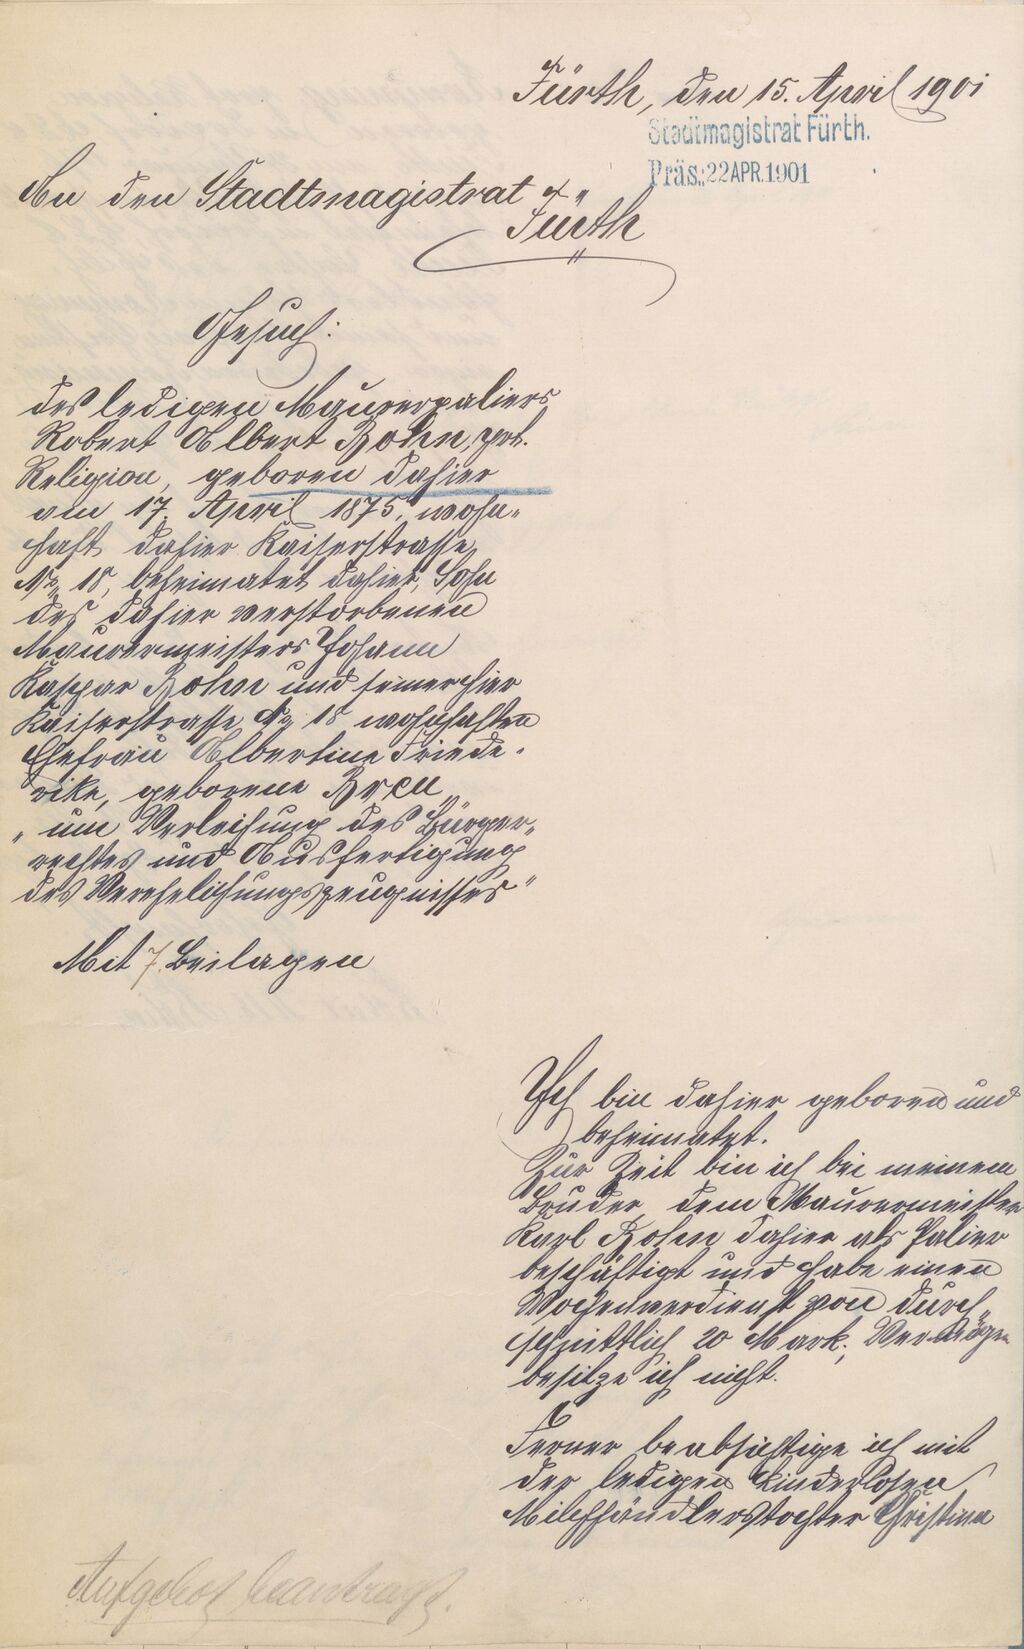 Fürth, den 15. April 1901
Stadtmagistrat Fürth.
Präs.: 22 APR. 1901
An den Stadtmagistrat
Fürth
Gesuch:
des ledigen Maurerpaliers
Robert Albert Bohn, prt.
Religion, geboren dahier
am 17. April 1875, wohn-
haft dahier Kaiserstrasse
No 18, beheimatet dahier, Sohn
des dahier verstorbenen
Maurermeisters Johann
Kaspar Bohn und seiner hier
Kaiserstrasse No 18 wohnhaften
Ehefrau Albertine Friede-
rike, geborene
"um Verleihung des Bürger-
rechtes und Ausfertigung
des Verehelichungszeugnisses"
Mit 7 Beilagen
Ich bin dahier geboren und
beheimatet.
Zur Zeit bin ich bei meinem
Bruder, dem Maurermeister
Karl Bohn dahier als Palier
beschäftigt und habe einen
Wochenverdienst von durch-
schnittlich 20 Mark; Vermögen
besitze ich nicht.
Ferner beabsichtige ich mit
der ledigen kinderlosen
Milchhändlerstochter Christina
Aufgebot beantragt.